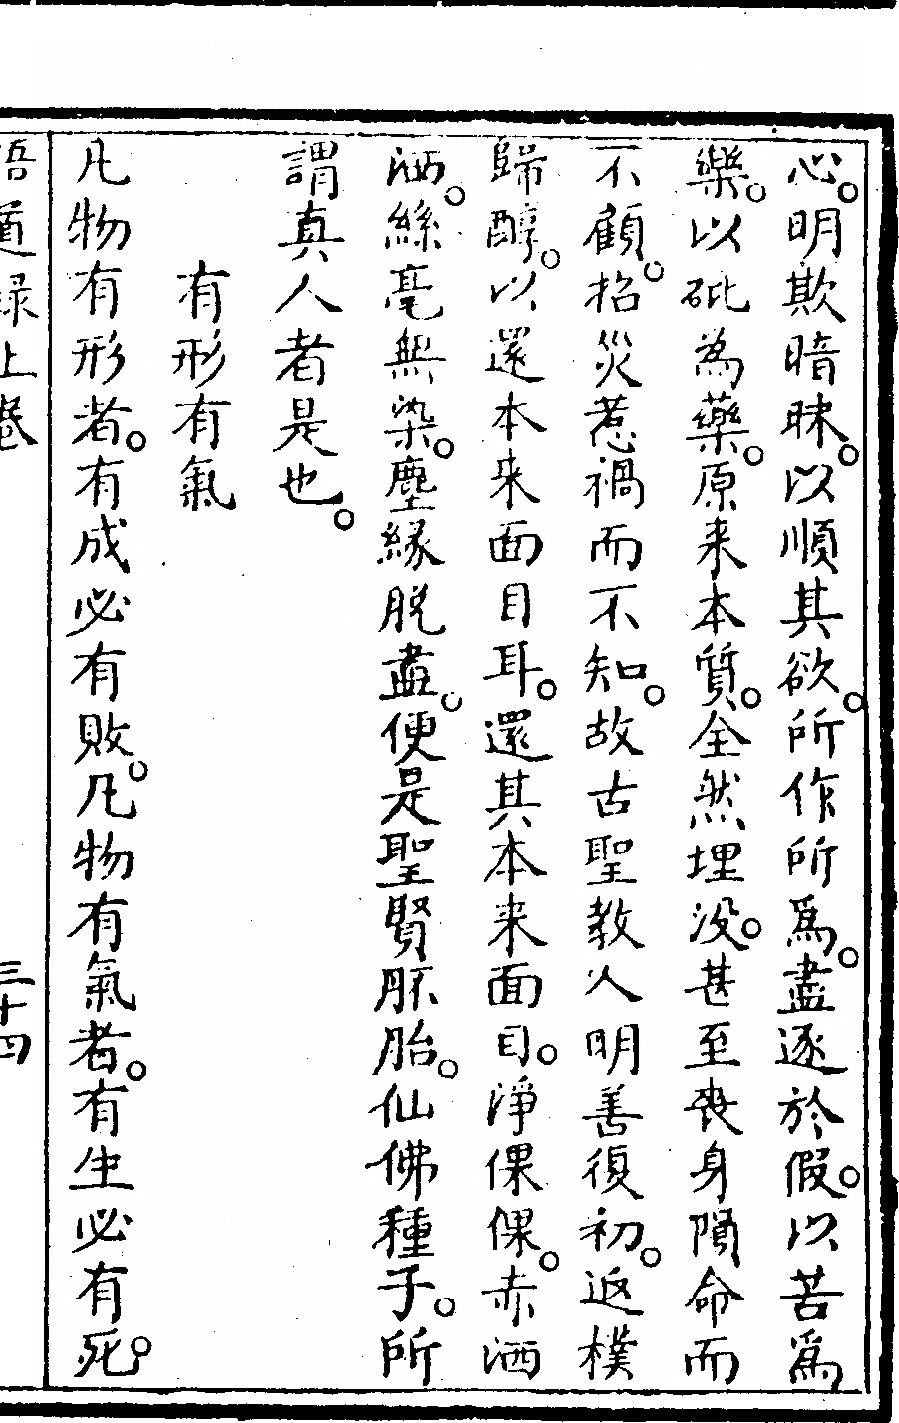 心。明欺暗昧。以順其欲。所作所為。盡逐於假。以苦為
樂。以砒為藥。原来本質。全然埋没。甚至丧身隕命而
不顧。招災惹禍而不知。故古聖教人明善復初。返樸
歸醇。以還本来面目耳。還其本来面目。淨倮倮。赤洒
洒。絲毫無染。塵緣脱盡。便是聖賢胚胎。仙佛種子。所
謂真人者是也。
有形有氣
凡物有形者。有成必有敗。凡物有氣者。有生必有死。
悟道録上卷 三十四